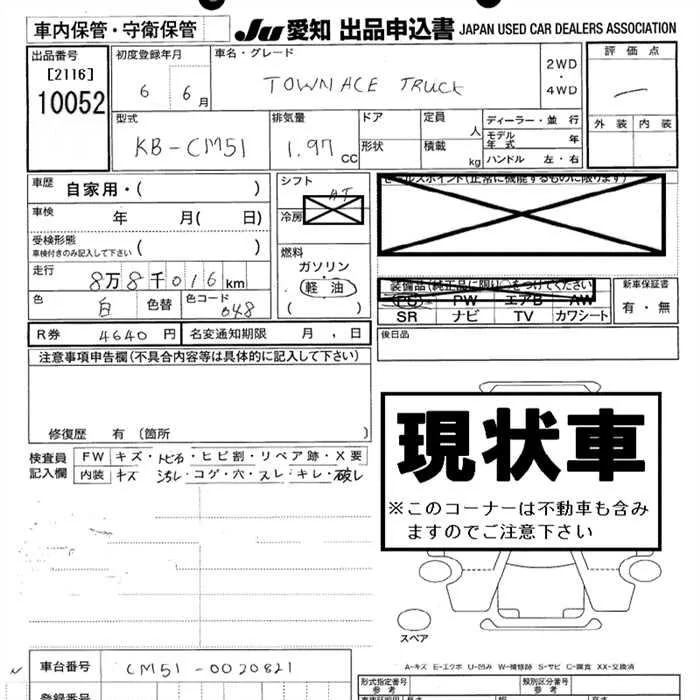 車内保管・守衛保管 JU 愛知 出品申込書 JAPAN USED CAR DEALERS ASSOCIATION
出品番号
[2116]
10052
初度登録年月
6 6月
車名・グレード
TOWN ACE TRUCK
2WD
・
4WD
評価点
ー
外装 内装
型式
KB-CM51
排気量
1.97 CC
ドア
形状
定員 人
積載 kg
ディーラー・並行
モデル年式 年
ハンドル 左・右
車歴 自家用・( )
車検 年 月( 日)
受検形態
車検付きのみ記入して下さい ( )
走行 8万8千016km
色 白 色替 色コード 048
シフト AT
冷房
燃料
ガソリン・
軽油
( )
セールスポイント(正常に機能するものに限ります)
装備品(純正品に限り○をつけてください)
PS PW エアB AW
SR ナビ TV カワシート
新車保証書
有・無
R券 4640円 名変通知期限 月、日
後日品
注意事項申告欄(不具合内容等は具体的に記入して下さい)
修復歴 有(箇所 )
検査員
記入欄
FW キズ・トビ石・ヒビ割・リペア跡・X要
内装 キズ 汚レ・コゲ・穴・スレ・キレ・破レ
現状車
※このコーナーは不動車も含み
ますのでご注意下さい
スペア
A-キズ E-エクボ U-凹み W-補修跡 S-サビ C-腐食 XX-交換済
車台番号 CM51-0020821
登録番号
型式指定番号
参考
類別区分番号
参考